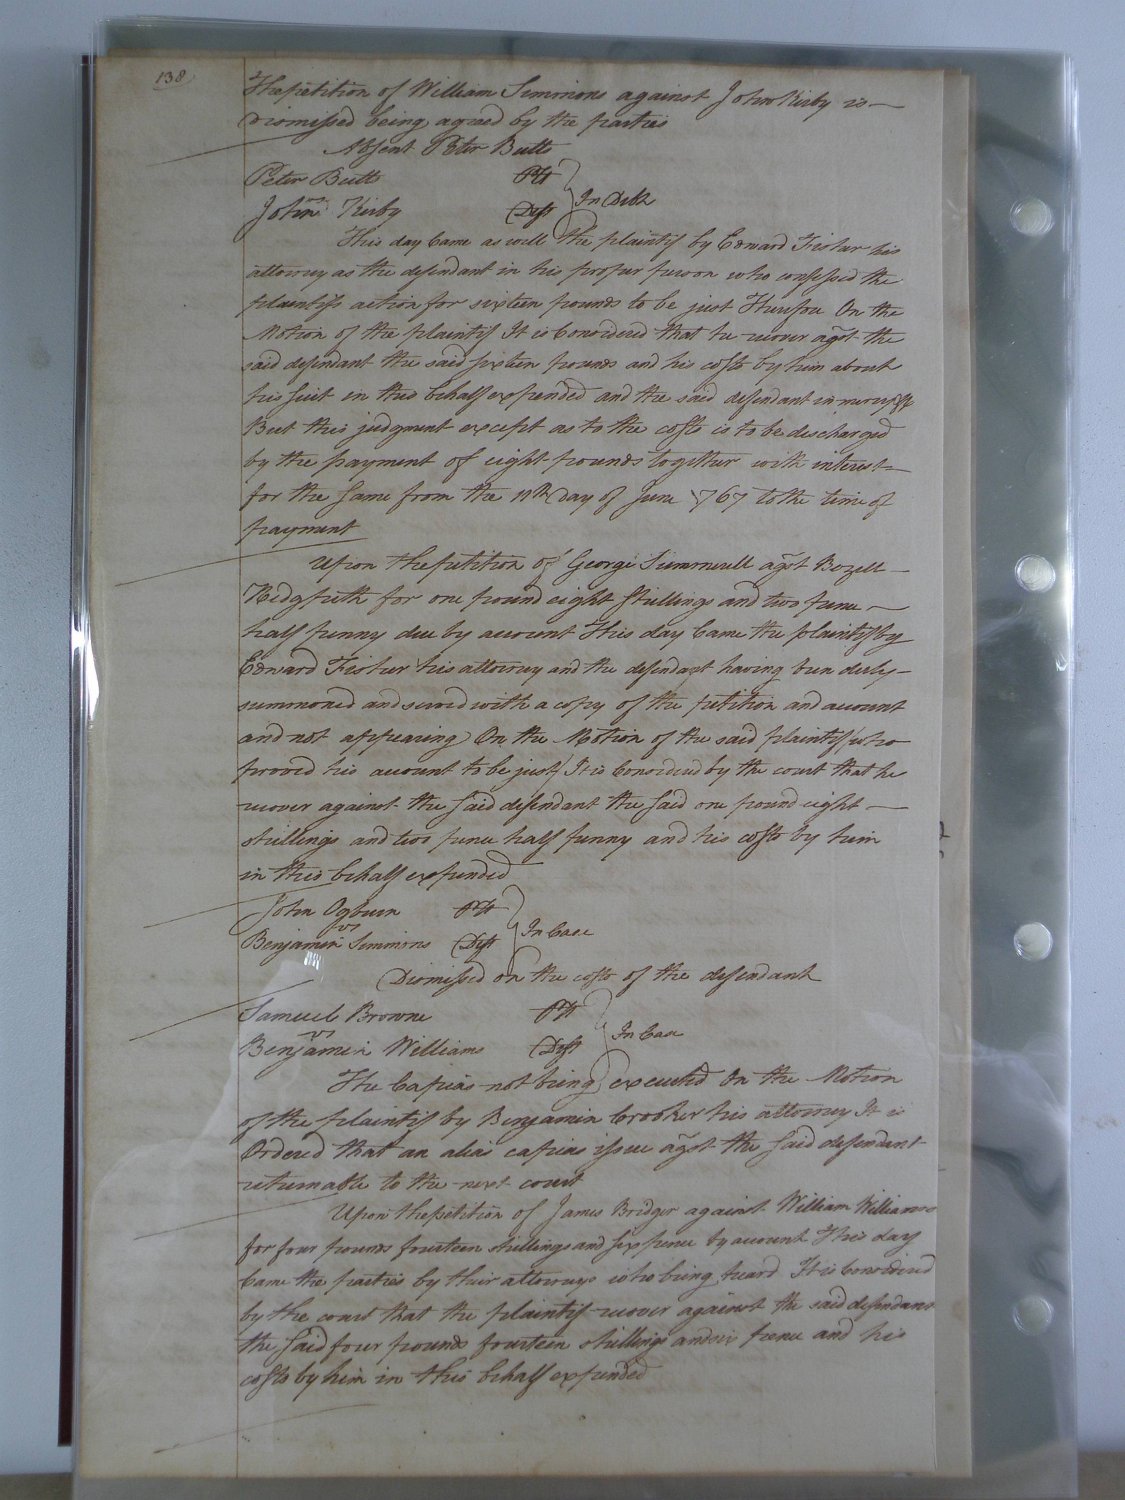 138
The petition of William Simmons against John Kirby is
Dismissed being agreed by the parties
Absent Peter Butts
Peter Butts Plt
vs In Debt
John Kirby Deft
This day Came as well the plaintif by Edward Fisher his
attorney as the defendant in his proper person who confessed the
plaintifs action for sixteen pounds to be just Therefore On the
Motion of the plaintif It is Considered that he recover agst the
said defendant the said sixteen pounds and his costs by him about
his suit in this behalf expended and the said defendant in mercy &c
But this judgment except as to the costs is to be discharged
by the payment of eight pounds together with interest
for the same from the 11th Day of June 1767 to the time of
payment
Upon the petition of George Summerell agst Bozell
Hedgpeth for one pound eight shillings and two pence
half penny due by account This day Came the plaintif by
Edward Fisher his attorney and the defendant having been duly
summoned and served with a copy of the petition and account
and not appearing On the Motion of the said plaintif who
proved his account to be just It is Considered by the court that he
recover against the said defendant the said one pound eight
shillings and two pence half penny and his costs by him
in this behalf expended
John Ogburn Plt
vs In Case
Benjamin Simmons Deft
Dismissed on the costs of the defendant
Samuel Browne Plt
vs In Case
Benjamin Williams Deft
The Capias not being executed On the Motion
of the plaintif by Benjamin Crooker his attorney It is
Ordered that an alias capias issue agst the said defendant
returnable to the next court
Upon the petition of James Bridger against William Williams
for four pounds fourteen shillings and six pence by account This day
Came the parties by their attorneys who being heard It is Considered
by the court that the plaintif recover against the said defendant
the said four pounds fourteen shillings and six pence and his
costs by him in this behalf expended